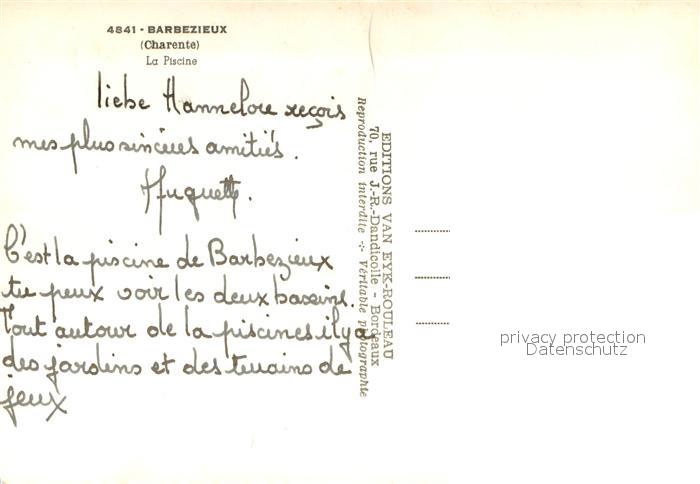 4841 - BARBEZIEUX
(Charente)
La Piscine
liebe Hannelore reçois
mes plus sincères amitiés.
Huguette.
C'est la piscine de Barbezieux
tu peux voir les deux bassins.
Tout autour de la piscines il y a
des jardins et des terrains de
jeux
EDITIONS VAN EYK-ROULEAU
70, rue J.-R.-Dandicolle - Bordeaux
Reproduction interdite -:- Véritable photographie
privacy protection
Datenschutz